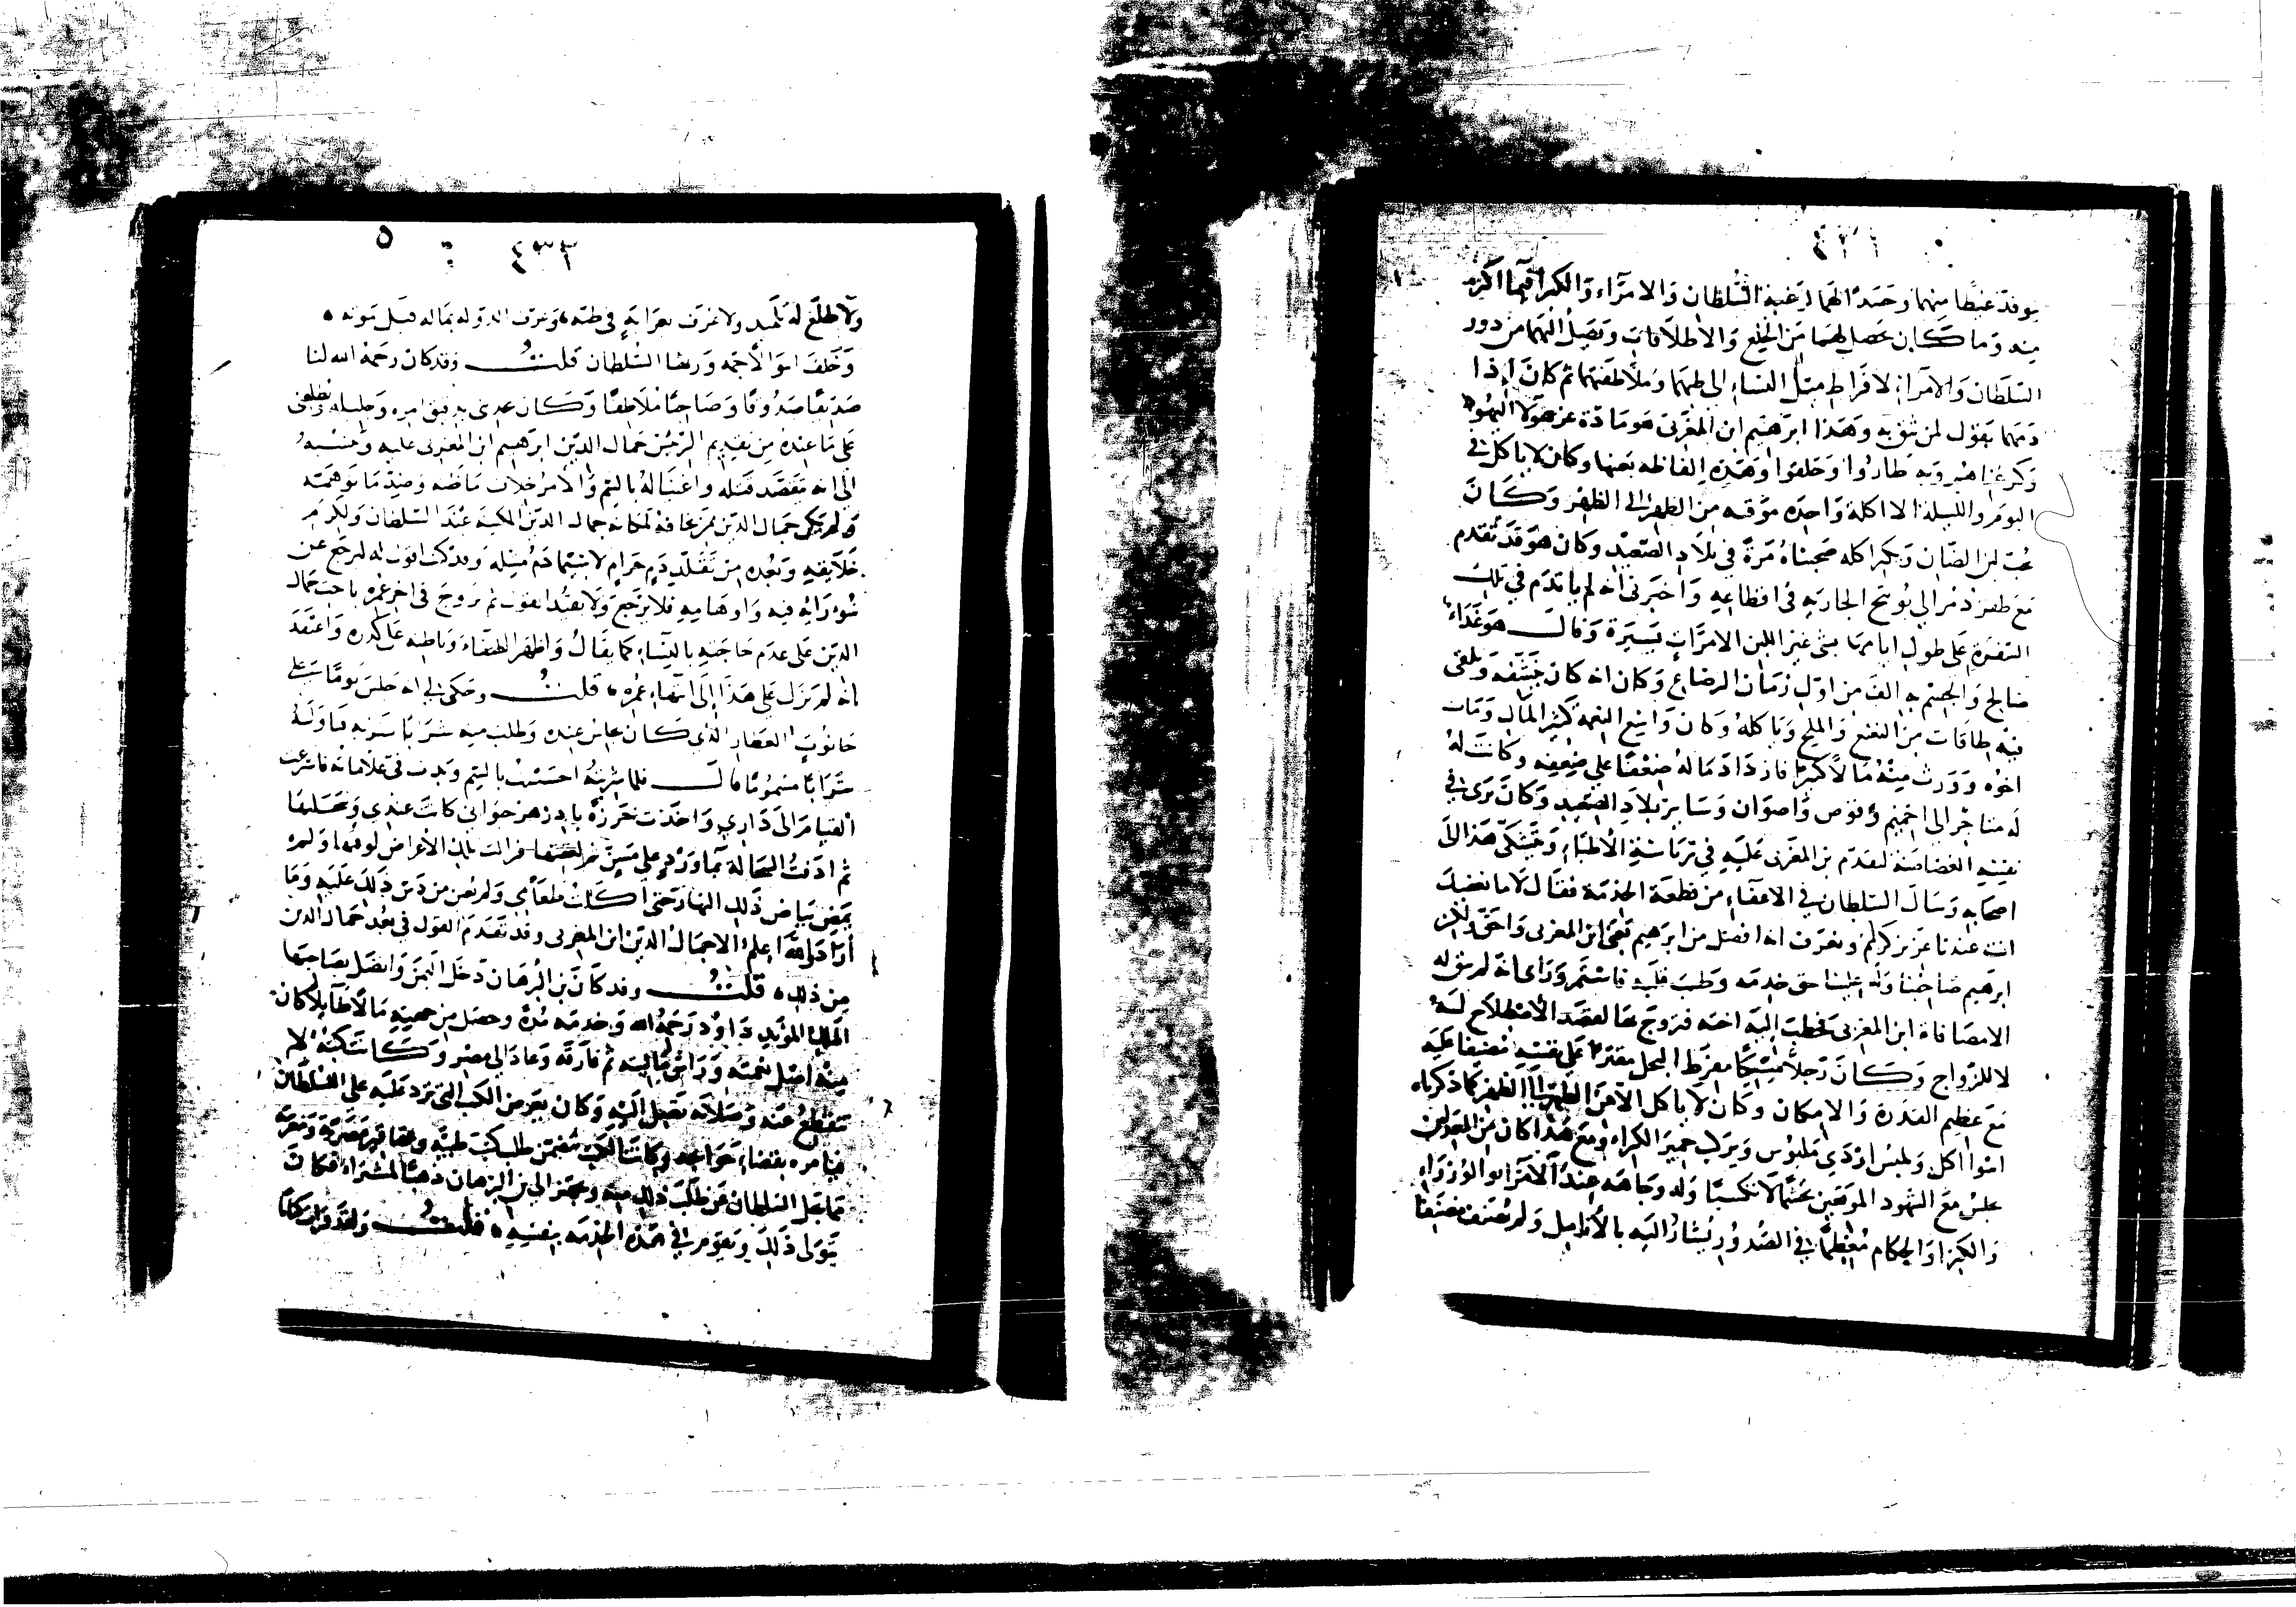 يوقد غبطا منهما وحسدا لهما لرغبة السلطان والامراء والكبرا فيهما اكثر
منه وما كان يحصل لهما من الخلع والاطلاقات ويصل اليهما من دور
السلطان والامراء لافراط ميل النساء الى طبهما وملاطفتهما ثم كان اذا
ذمهما يقول لمن يثق به وهذا ابرهيم ابن المغربى هو مادة عن هولا اليهود
طاروا وحلقوا وهذه الفاظه بعينها وكان لا ياكل في
اليوم والليلة الا اكلة واحدة موقته من الظهر الى الظهر وكان
يحب لبن الضان ويكثر اكله صحبناه مرة في بلاد الصعيد وكان هو قد تقدم
مع طقز دمر الي توشح الجارية في اقطاعه واخبرني انه لم ياتدم في تلك
السفرة على طول ايامها بشى غير اللبن الا مرات يسيرة وقال هو غداء
صالح والجسم به الف من اول زمان الرضاع وكان انه كان يثقفه ويلقى
فيه طاقات من النعنع والملح وياكله وكان واسع النعمة كثير المال ومات
اخوه وورث منه مالا كثيرا فازداد ماله ضعفا على ضعفه وكانت له
له متاجر الى اخميم وقوص واصوان وساير بلاد الصعيد وكان يرى في
نفسه الغضاضة لتقدم بن المغربى عليه في رياسة الاطباء ويشتكى هذا الى
اصحابه وسال السلطان في الاعفاء من قطعة الخدمة فقال لا ما نفعل
انت عندنا عزيز كريم ونعرف انه افضل من ابرهيم يعني ابن المغربى واحق ولكن
ابرهيم صاحبنا وله علينا حق خدمة وطيب قلبه فاستمر وراى انه لم يبق له
الا مصافاة ابن المغربى فخطب اليه اخته فتزوج بها لقصد الاصطلاح لسو
لا للزواج وكان رجلا ممسكا مفرط البخل مقترا على نفسه مضيقا عليه
مع عظيم القدرة والامكان وكان لا ياكل الا من الظهر الى الظهر كما ذكرناه
اسوا اكل ويلبس اردى ملبوس ويركب حمير الكراء ومع هذا كان من المعدلين
يجلس مع الشهود الموقعين تحشما لا تكسبا وله وجاهة عند الامرا والوزراء
والكبرا والحكام معظما في الصدور يشار اليه بالانامل ولم يصنف مصنفا
٤٣٣ ٥
ولا طلع له تلميذ ولا عرف بغرابة في طبه وعرف الدولة بماله قبل موته
وخلف اموالا جمة ورثها السلطان قلت وقد كان رحمه الله لنا
صديقا صدوقا وصاحبا ملاطفا وكان عندى به فيق امره وجليله
على ما عنده من تقديم الرئيس جمال الدين ابرهيم ابن المغربى عليه وينسبه
الى انه تقصد قتله واغتياله بالسم والامر خلاف ما ظنه وضد ما توهمه
ولم يكن جمال الدين ممن يخافه لمكانة جمال الدين المكينة عند السلطان ولكرم
خلايقه وبعده من تقلد دم حرام لا سيما دم مثله وقد كنت اقول له ليرجع عن
سوء رايه فيه واوهامه فلا يرجع ولا يفيد القول ثم تزوج في اخر عمره باخت جمال
الدين على عدم حاجته بالنساء كما يقال واظهر الصفاء وباطنه على كدره واعتقد
انه لم يزل على هذا الى انتهاء عمره قلت وحكى لي انه جلس يوما على
حانوت العطار الذى كان يجلس عنده وطلب منه شرابا يشربه فناوله
شرابا مسموما قال فلما شربته احسست بالسم وبدت في علاماته فاسرعت
القيام الى داري واخذت خرزة بادزهر حيواني كانت عندي
ثم ادفت السحالة بماورد على مسن ثم لعقتها فزالت تلك الاعراض لوقتها ولم
يمض بياض ذلك النهار حتى اكلت طعامي ولم يعن من دس ذلك عليه وما
اراد والله اعلم الا جمال الدين ابن المغربى وقد تقدم القول في بعد جمال الدين
من ذلك قلت وقد كان بن البرهان دخل اليمن واتصل بصاحبها
الملك المؤيد داود رحمه الله وخدمه مدة وحصل من جهته مالا طايلا كان
منه اصل نعمته وراس ماليته ثم فارقه وعاد الى مصر وكانت كتبه لا
تنقطع عنه وصلاته تصل اليه وكان يقر من الكتب التي ترد عليه على السلطان
فيامره بقضاء حوايجه وكانت الكتب تتضمن طلب كتب طبية وعقاقير مصرية ومغربية
فما يمل السلطان من طلب ذلك منه ويجهز الى بن البرهان ذهبا للمشتراة فكان
يتولى ذلك ويقوم في هذه الخدمة بنفسه قلت ولقد قرات كتابا